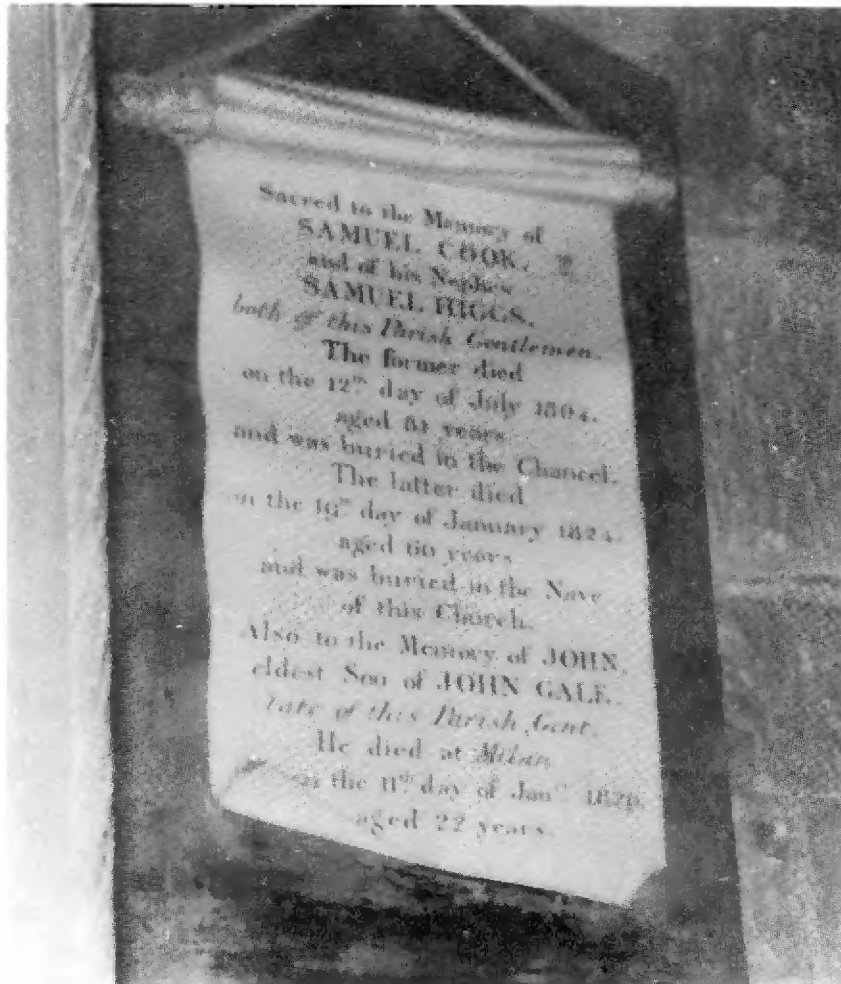 Sacred to the Memory of
SAMUEL COOK,
and of his Nephew
SAMUEL HIGGS,
both of this Parish Gentlemen.
The former died
on the 12th day of July 1804.
aged 81 years
and was buried in the Chancel.
The latter died
on the 19th day of January 1824.
aged 60 years
and was buried in the Nave
of this Church.
Also to the Memory of JOHN,
eldest Son of JOHN GALE,
late of this Parish Gent.
He died at Milan
on the 11th day of Jany
aged 22 years.